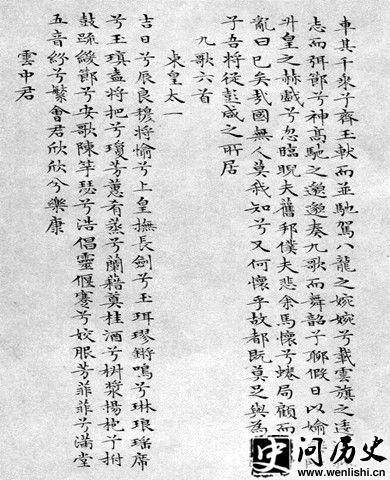 車其千乘兮齊玉軑而並馳駕八龍之婉婉兮載雲旗之逶
志而弭節兮神高馳之邈邈奏九歌而舞韶兮聊假日以婾
升皇之赫戲兮忽臨睨夫舊鄉僕夫悲余馬懷兮蜷局顧而
亂曰已矣哉國無人莫我知兮又何懷乎故都既莫足與為
兮吾將從彭咸之所居
九歌六首
東皇太一
吉日兮辰良穆將愉兮上皇撫長劍兮玉珥璆鏘鳴兮琳琅瑤席
兮玉瑱盍將把兮瓊芳蕙肴蒸兮蘭藉奠桂酒兮椒漿揚枹兮拊
鼓疏緩節兮安歌陳竽瑟兮浩倡靈偃蹇兮姣服芳菲菲兮滿堂
五音紛兮繁會君欣欣兮樂康
雲中君
史问历史
www.wenlishi.cn